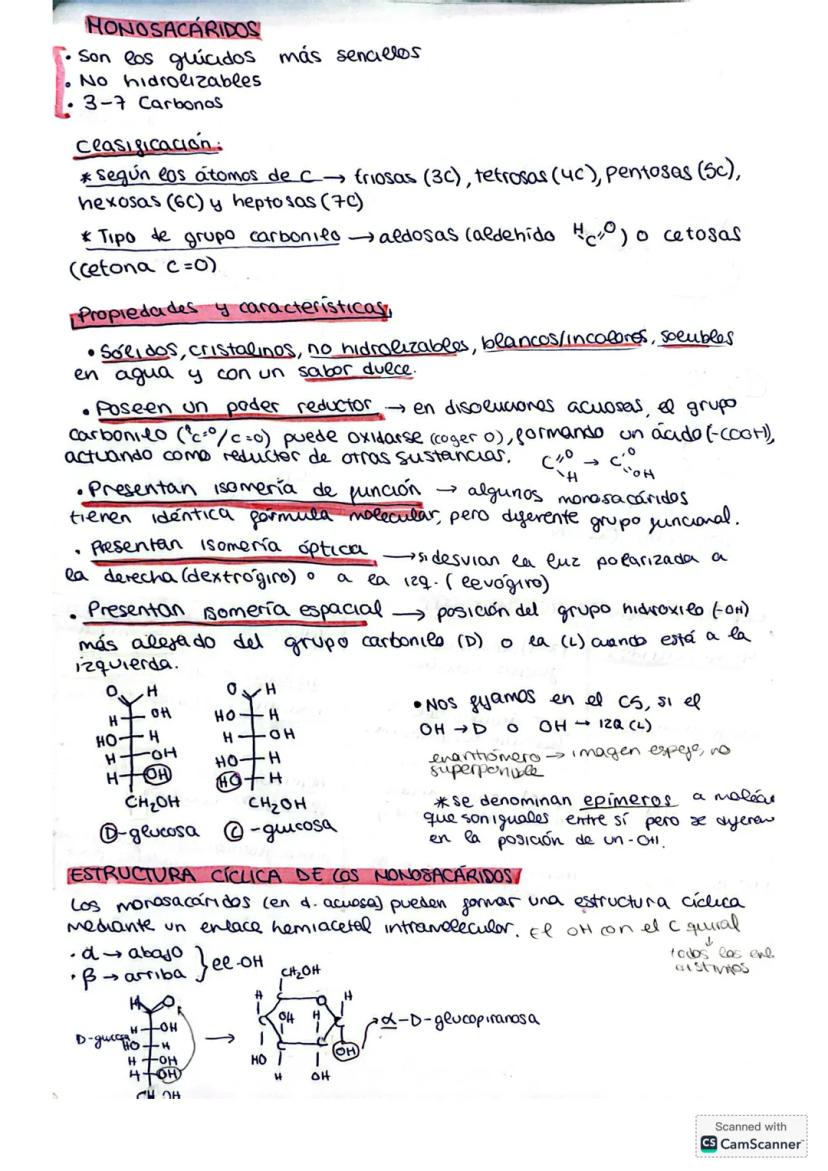 MONOSACÁRIDOS
• Son los glúcidos más sencillos
• No hidrolizables
• 3-7 Carbonos
Clasificación:
* Según los átomos de C → triosas (3C), tetrosas (4C), pentosas (5C),
hexosas (6C) y heptosas (7C)
* Tipo de grupo carbonilo → aldosas (aldehído H C=O) o cetosas
(cetona C=O)
Propiedades y características
• Sólidos, cristalinos, no hidrolizables, blancos/incoloros, solubles
en agua y con un sabor dulce.
• Poseen un poder reductor → en disoluciones acuosas, el grupo
carbonilo (HC=O/C=O) puede oxidarse (coger O), formando un ácido (-COOH),
actuando como reductor de otras sustancias. C=O H → C=O OH
• Presentan isomería de función → algunos monosacáridos
tienen idéntica fórmula molecular, pero diferente grupo funcional.
• Presentan isomería óptica → si desvían la luz polarizada a
la derecha (dextrógiro) o a la izq. (levógiro)
• Presentan isomería espacial → posición del grupo hidroxilo (-OH)
más alejado del grupo carbonilo (D) o la (L) cuando está a la
izquierda.
O H
H OH
HO H
H OH
H OH
CH₂OH
D-glucosa
O H
HO H
H OH
HO H
HO H
CH₂OH
L-glucosa
• Nos fijamos en el C5, si el
OH → D o OH → IZQ (L)
enantiómero → imagen espejo, no
superponible
* se denominan epímeros a moléc
que son iguales entre sí pero se diferen
en la posición de un -OH.
ESTRUCTURA CÍCLICA DE LOS MONOSACÁRIDOS
Los monosacáridos (en d. acuosa) pueden formar una estructura cíclica
mediante un enlace hemiacetal intramolecular. El OH con el C quiral
↓
todos los enl.
distintos
• α → abajo
• β → arriba } el -OH
D-glucosa
H O
H OH
HO H
H OH
H OH
CH OH
→
CH₂OH
H O H
OH H
HO OH
H OH
α-D-glucopiranosa
Scanned with
CS CamScanner